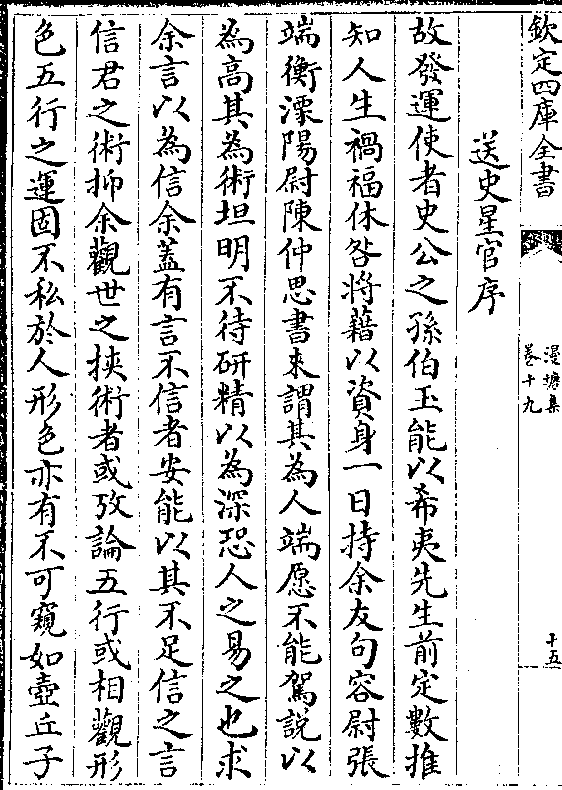 欽定四庫全書
漫塘集
卷十九
十五
送史星官序
故發運使者史公之孫伯玉能以希夷先生前定數推
知人生禍福休咎將藉以資身一日持余友句容尉張
端衡溧陽尉陳仲思書來謂其為人端愿不能駕說以
為高其為術坦明不待研精以為深恐人之易之也求
余言以為信余蓋有言不信者安能以其不足信之言
信君之術抑余觀世之挾術者或攷論五行或相觀形
色五行之運固不私於人形色亦有不可窺如壺丘子